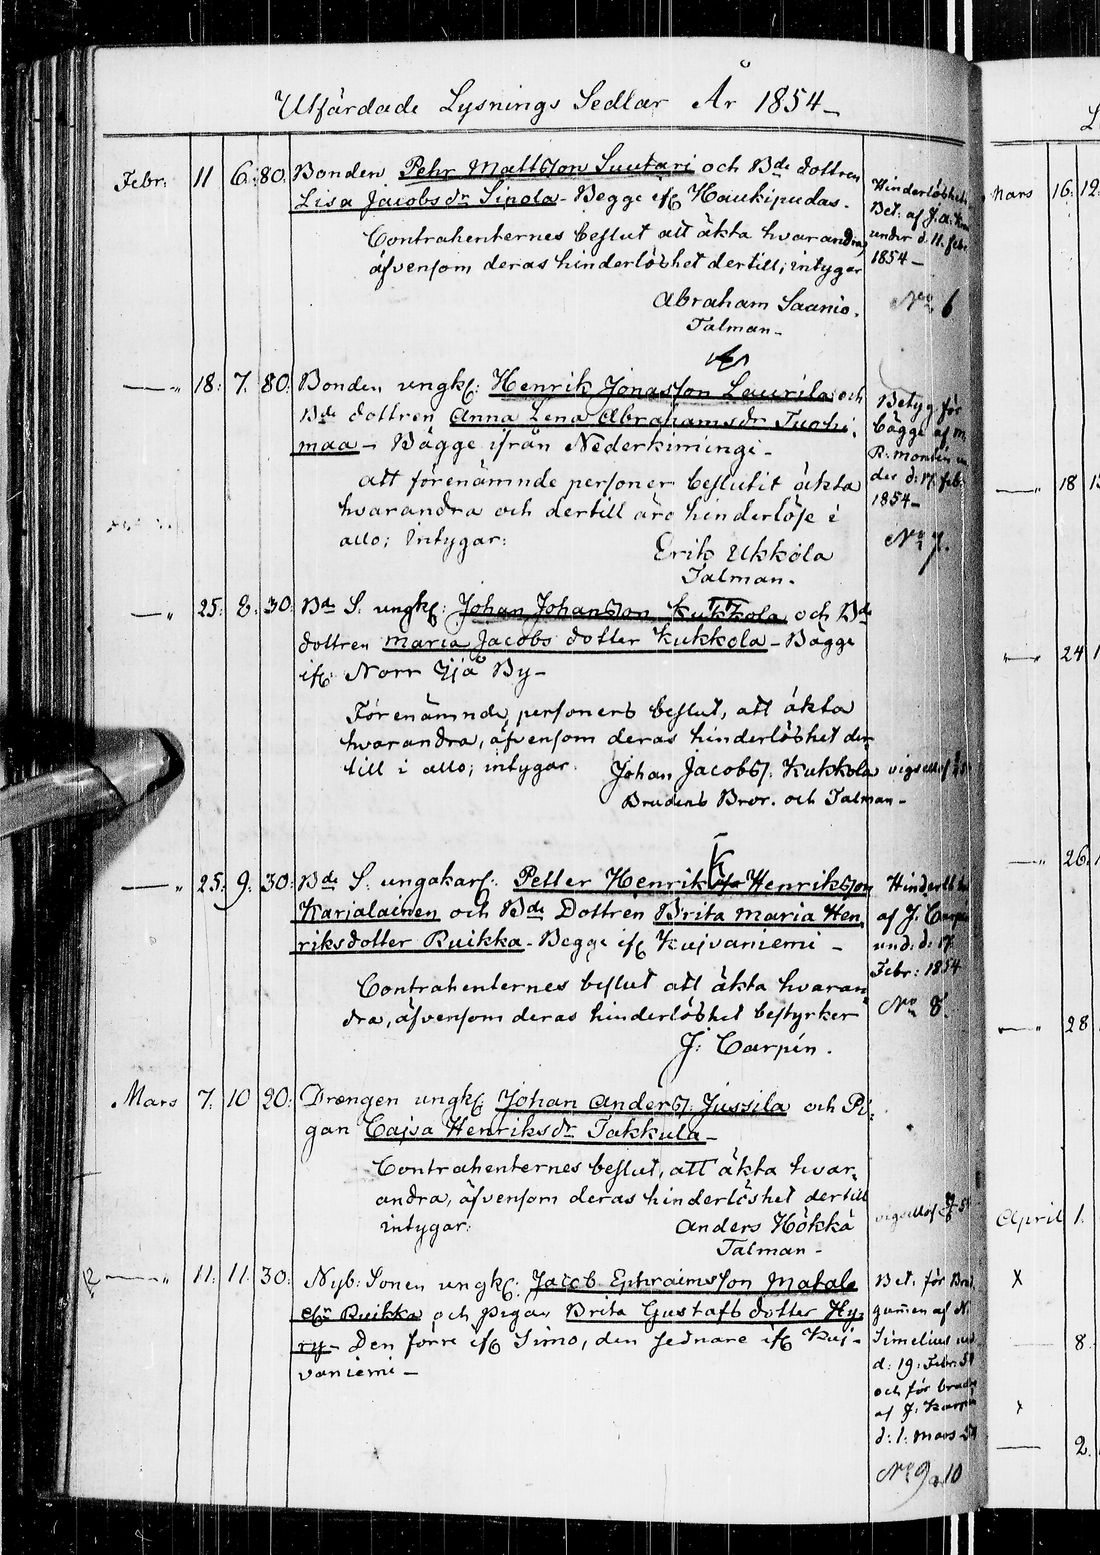 Utfärdade Lysnings Sedlar År 1854 -
Febr: 11 6. 80. Bonden Pehr Mattsson Suutari och Bde dottren
Lisa Jacobs dr Sipola - Begge ifr. Haukipudas.
Contrahenternes beslut att äkta hvarandra,
äfvensom deras hinderlöshet dertill; intygar
Abraham Saanio.
Talman -
Hinderlöshets
Bet. af J. A.
under d. 11. febr
1854 -
No 6
— " 18: 7. 80. Bonden ungk: Henrik Jonasson Laurila och
Bde dottren Anna Lena Abrahamsdr Tuohi,
maa - Bägge ifrån Nederkimingi -
att förenämnde personer beslutit äkta
hvarandra och dertill äro hinderlöse i
allo; intygar:
Erik Ukkola
Talman -
Betyg för
bägge af
R. Montin un
der d: 17. feb:
1854 -
No 7.
— " 25: 8. 30. Bde S. ungk: Johan Johansson Kukkola och Bde
dottren Maria Jacobs dotter Kukkola - Bägge
ifr: Norr Ijå By -
Förenämnde personers beslut, att äkta
hvarandra, äfvensom deras hinderlöshet der-
till i allo; intygar.
Johan Jacobs. Kukkola
Brudens Bror. och Talman -
— " 25: 9. 30. Bde S. ungakarl: Petter Henrik Henriksson
Karjalainen och Bde Dottren Brita Maria Hen,
riksdotter Ruikka - Begge ifr Kuivaniemi -
Contrahenternes beslut att äkta hvaran-
dra, äfvensom deras hinderlöshet bestyrker
J. Carpén.
af J. Carpén
und: d: 17
Febr: 1854
No 8.
Mars 7. 10 20. Drengen ungk: Johan Anders. Jussila och Pi-
gan Cajsa Henriksdr Takkula -
Contrahenternes beslut, att äkta hvar-
andra, äfvensom deras hinderlöshet dertill
intygar:
Anders Hökkä
Talman -
— " 11. 11. 30. Nyb: Sonen ungk: Jacob Ephraimsson Matala
Ruikka och pigan Brita Gustafs dotter Hy,
ry - Den förre ifr Simo, den sednare ifr Kui-
vaniemi -
Bet. för Brud
gumen af N.
Simelius und
d: 19: Febr: 54
och för bruden
af J. Karpén
d: 1. Mars 54
No 9 a 10
Mars 16. 12
— 18
— " 24
— " 26.
— " 28
April 1.
X
8.
x
— 2.